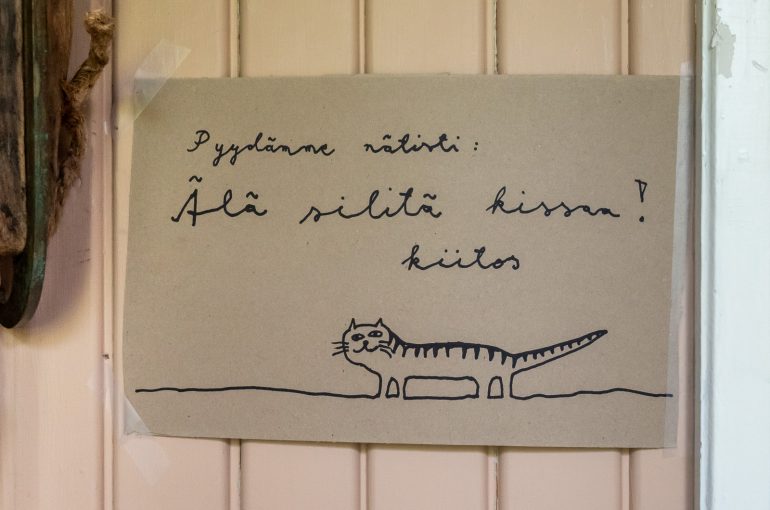 Pyydämme nätisti:
Älä silitä kissaa!
kiitos